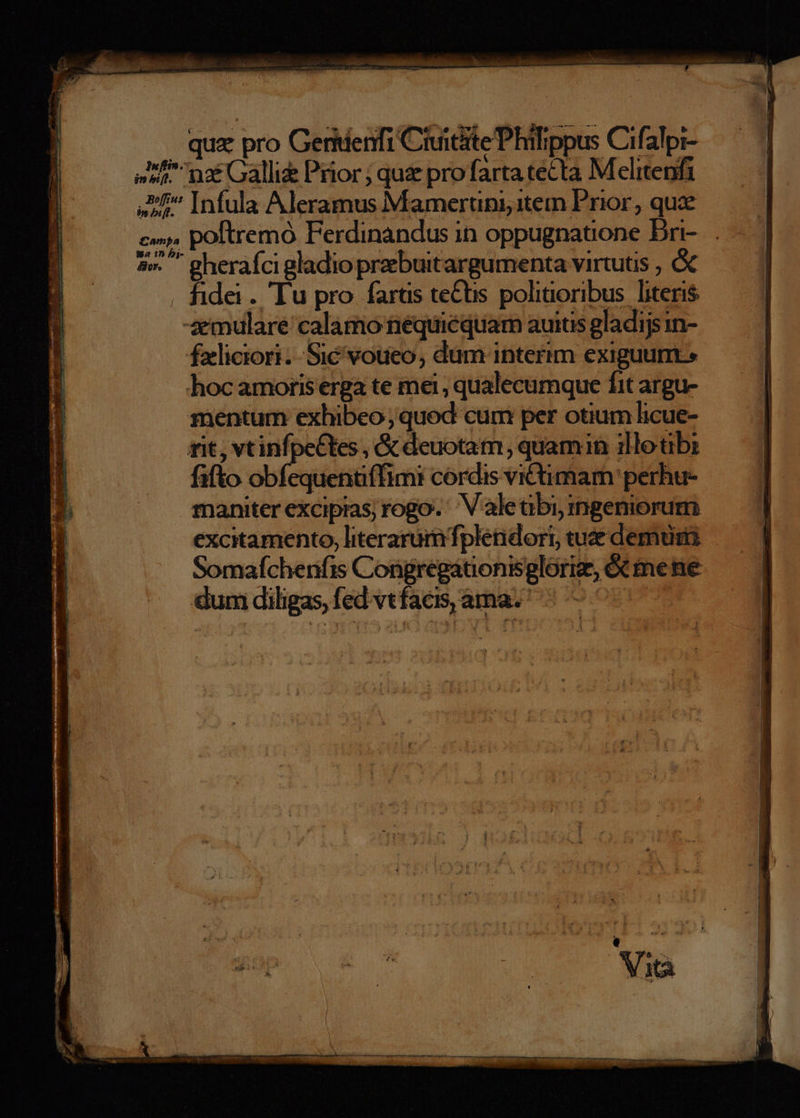 quæ pro Genuensi Ciuitate Philippus Cisalpi-
Iustin. in hist. næ Galliæ Prior; quæ pro sarta tecta Melitensi
Bossius in hist. Insula Aleramus Mamertini, item Prior, quæ
Campa na in hi- stor. postremò Ferdinandus in oppugnatione Bri-
gherasci gladio præbuit argumenta virtutis, &
fidei. Tu pro sartis tectis politioribus literis
æmulare calamo nequicquam auitis gladijs in-
fæliciori. Sic voueo, dum interim exiguum
hoc amoris erga te mei, qualecumque sit argu-
mentum exhibeo, quod cum per otium licue-
rit, vt inspectes, & deuotam, quam in illo tibi
sisto obsequentissimi cordis victimam perhu-
maniter excipias, rogo. Vale tibi, ingeniorum
excitamento, literarum splendori, tuæ demùm
Somaschensis Congregationis gloriæ, & me ne
dum diligas, sed vt facis, ama.
Vita